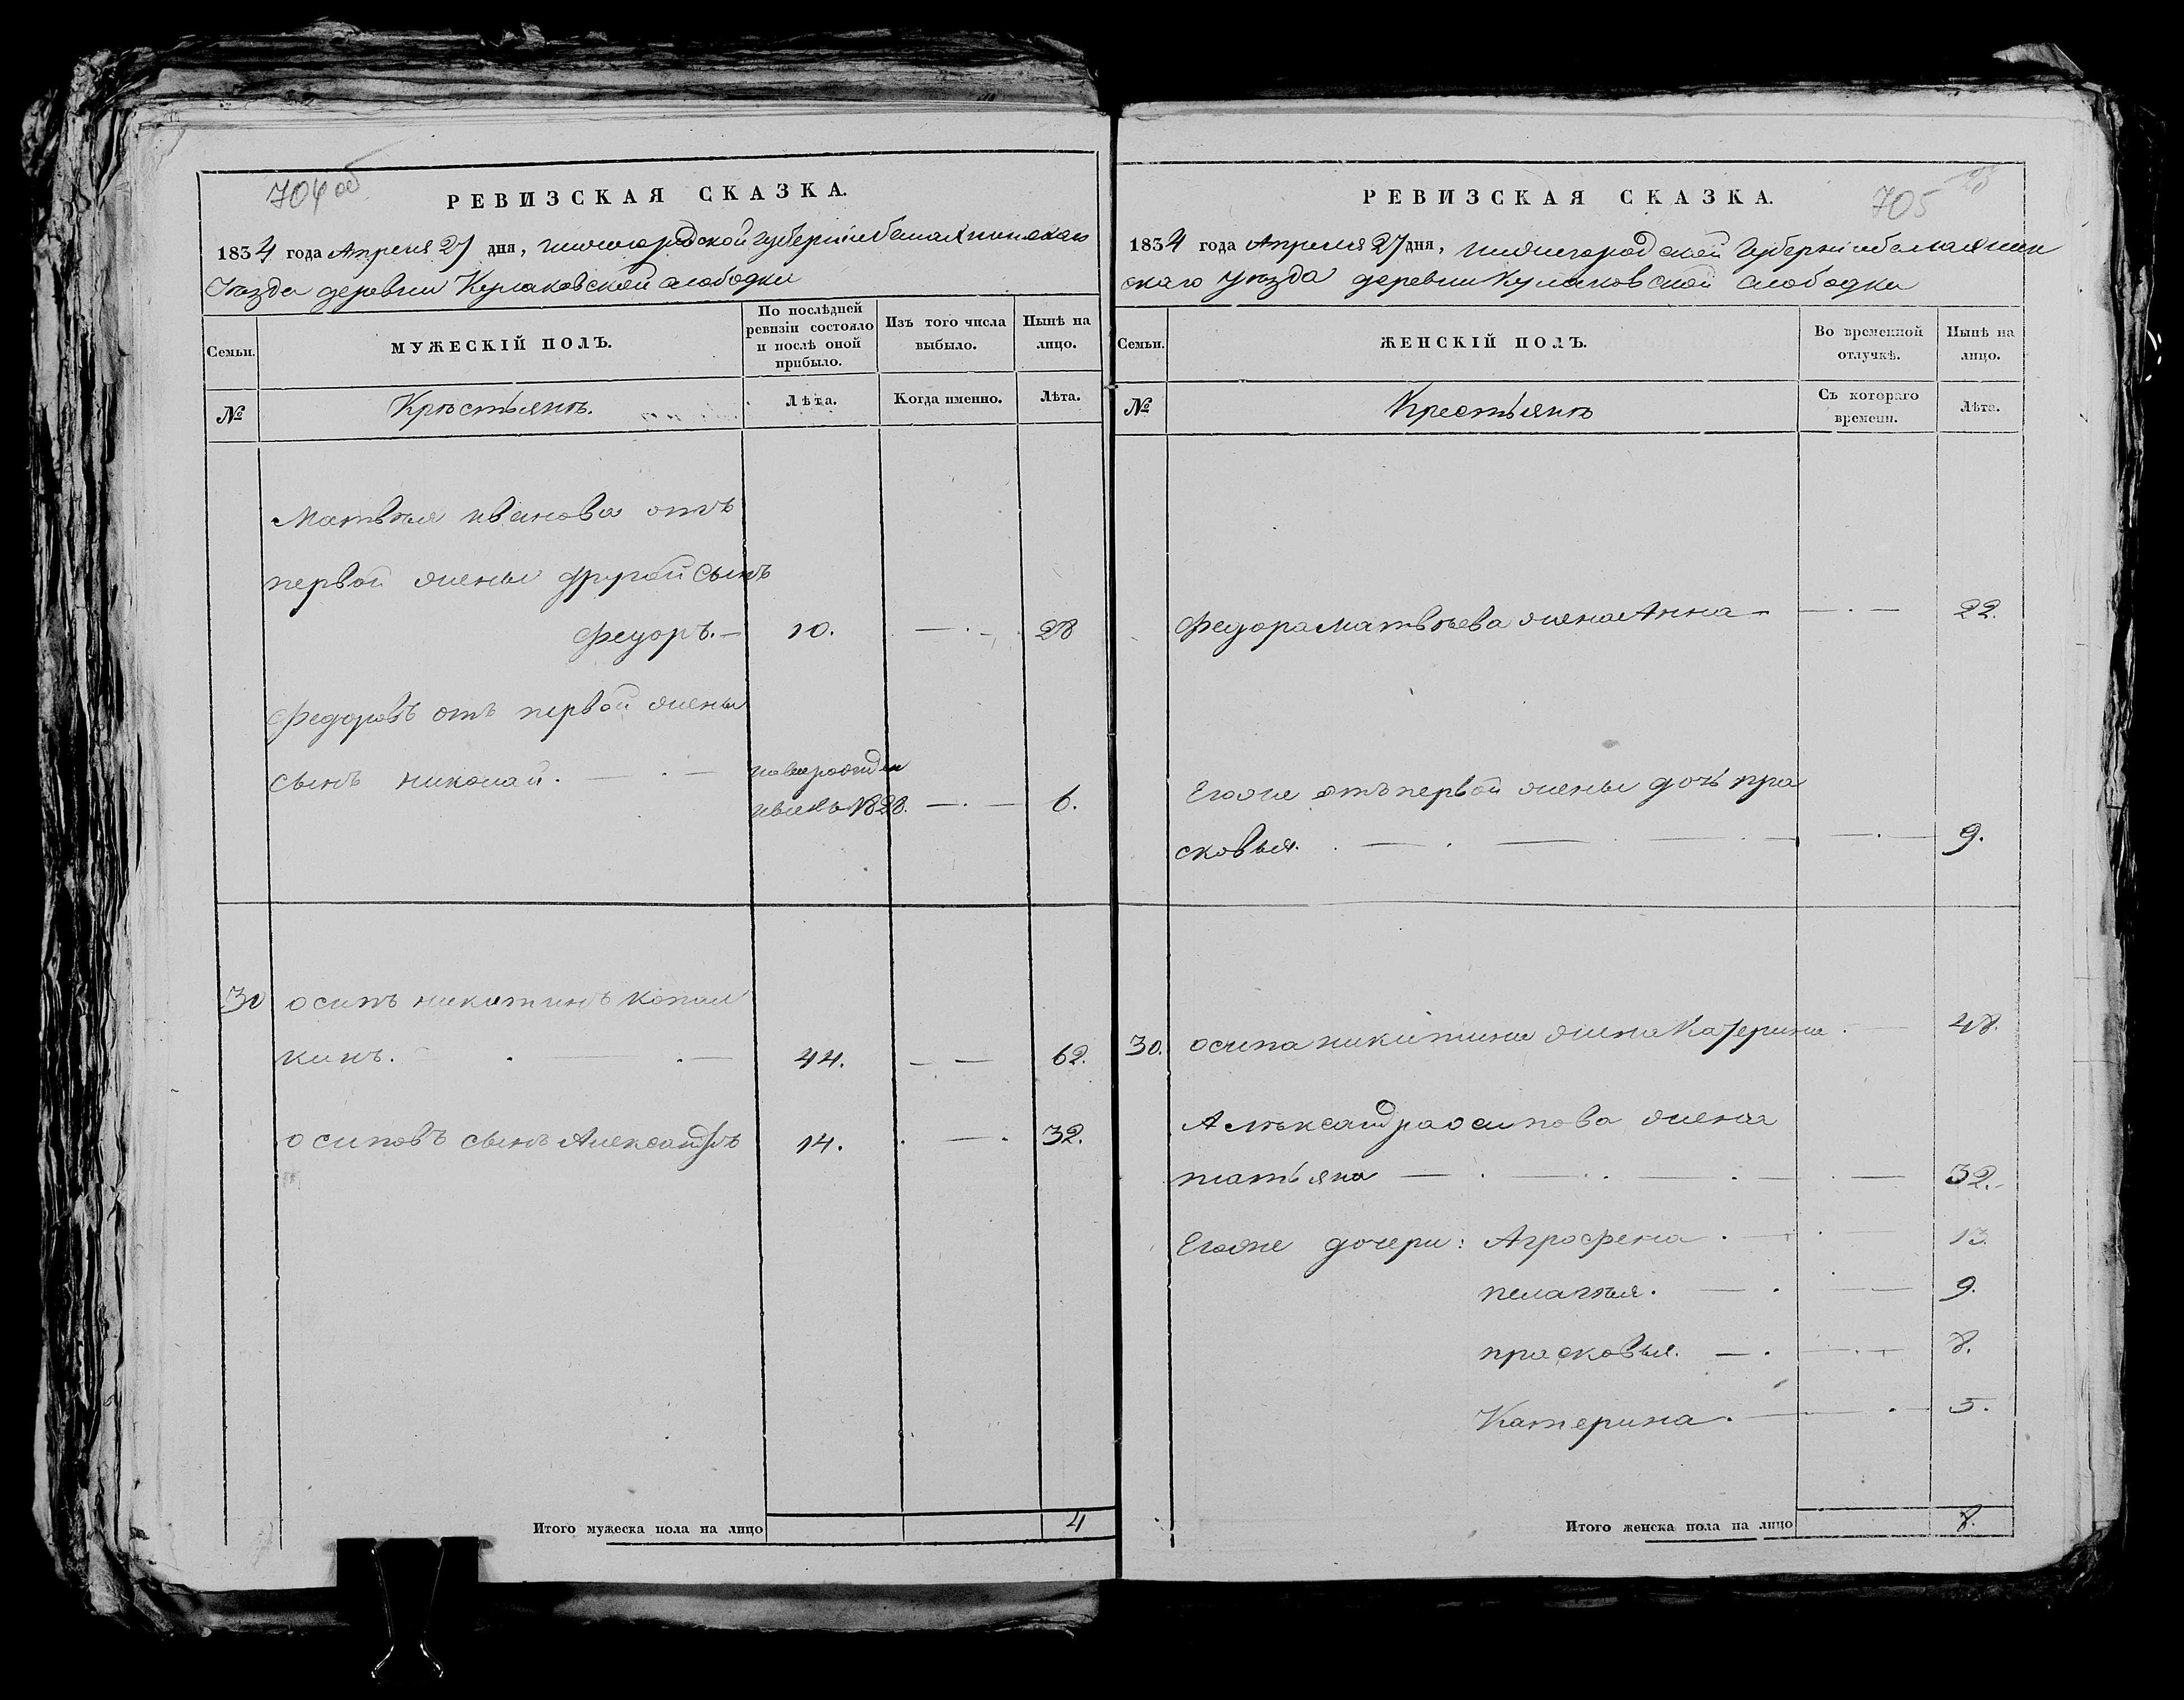 704 об
РЕВИЗСКАЯ СКАЗКА.
1834 года Апреля 27 дня, нижегородской губернии балахнинскаго
Уезда деревни Кулаковской слободки
Семьи.
МУЖЕСКІЙ ПОЛЪ.
По послѣдней ревизіи состояло и послѣ оной прибыло.
Изъ того числа выбыло.
Нынѣ на лицо.
№
Крѣстьянъ.
Лѣта.
Когда именно.
Лѣта.
Матвѣя иванова отъ
первой жены другой сынъ
Федоръ. — 10. — . — 28
Федоровъ отъ первой жены
сынъ николай. — . —
6.
30 осипъ никитинъ копал
кинъ. — . — . — 44. — — 62.
осиповъ сынъ Александръ 14. . — . 32.
Итого мужеска пола на лицо 4
705
РЕВИЗСКАЯ СКАЗКА.
1834 года Апреля 27 дня, нижегородской Губерніи балахнин
скаго уѣзда деревни Кулаковской слободки
Семьи.
ЖЕНСКІЙ ПОЛЪ.
Во временной отлучкѣ.
Нынѣ на лицо.
№
Крестьянъ
Съ котораго времени.
Лѣта.
Федора матвѣева жена Анна — — . — 22.
Егоже отъ первой жены дочь пра
сковья. . — . — — . — 9.
30. осипа никитина жена Каѳерина . — 48.
Алѣксандра осипова жена
татьяна — . — . . — . — 32.
Егоже дочери: Агрофена . — . — 13.
пелагѣя. — . — 9.
прасковья. — . — . — 8.
Катерина. — . — 5.
Итого женска пола на лицо 8.